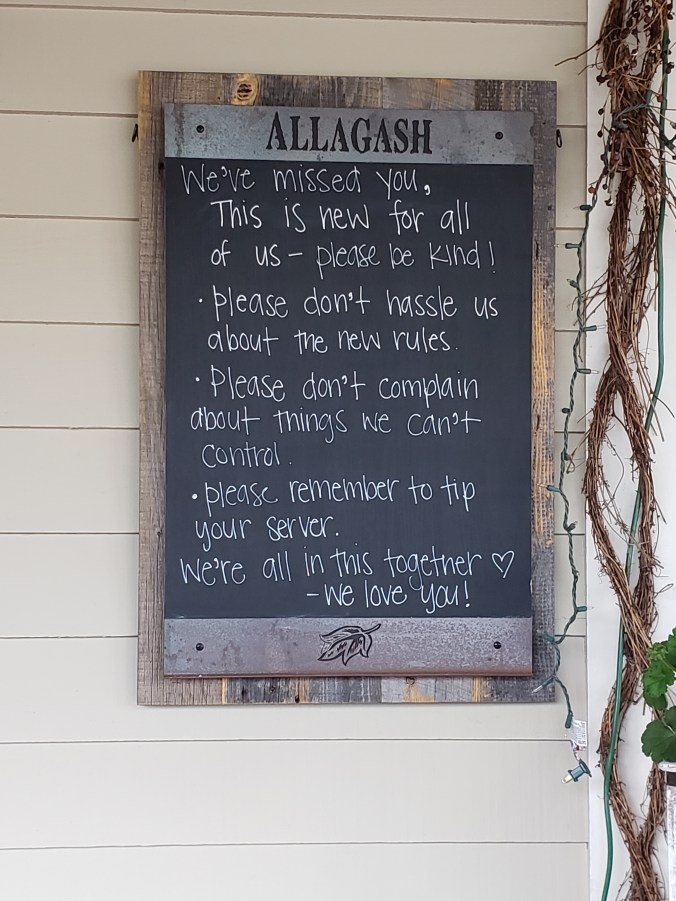 ALLAGASH
We've missed you,
This is new for all
of us - please be kind!
· please don't hassle us
about the new rules.
· Please don't complain
about things we can't
control.
· please remember to tip
your server.
We're all in this together ♡
- We love you!